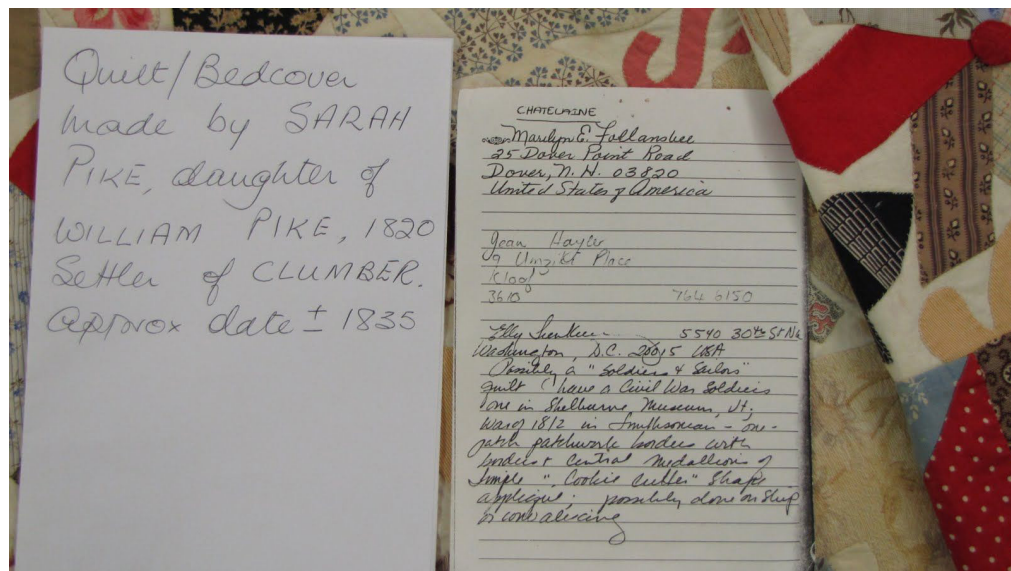 Quilt/Bedcover
made by SARAH
PIKE, daughter of
WILLIAM PIKE, 1820
Settler of CLUMBER.
approx date ± 1835
CHATELAINE
Marilyn E. Follansbee
25 Dover Point Road
Dover, N.H. 03820
United States of America
Jean Hayler
9 Umzibi Place
Kloof
3610 764 6150
Elly 5540 30th St NW
Washington, D.C. 20015 USA
Possibly a "Soldiers & Sailors"
quilt (have a Civil War Soldiers
one in Shelburne Museum, Vt;
War of 1812 in Smithsonian - one-
patch patchwork borders with
borders + central medallions of
simple "Cookie Cutter" shape
applique; possibly done on ship
or convalescing